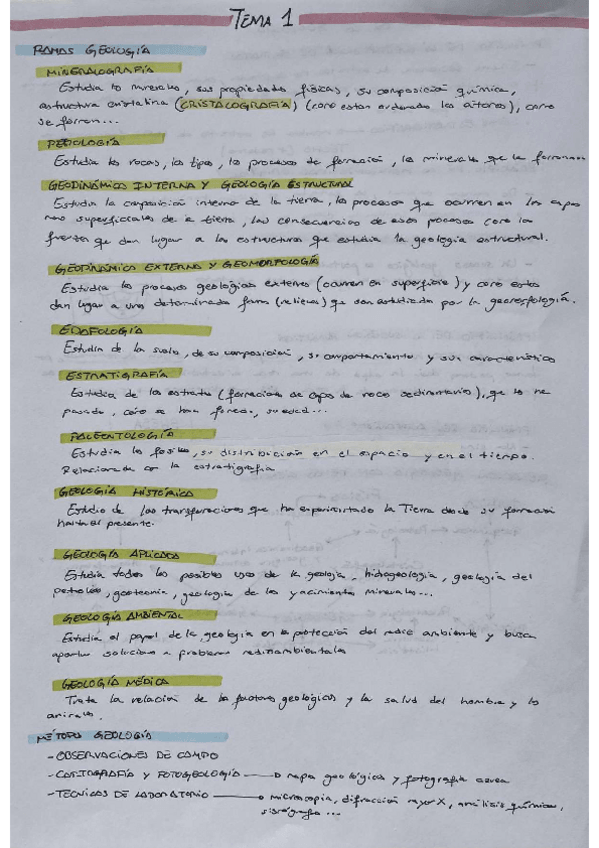 TEMA 1
RAMAS GEOLOGÍA
MINERALOGRAFÍA
Estudia los minerales, sus propiedades físicas, su composición química,
estructura cristalina (CRISTALOGRAFÍA) (como estan ordenados los átomos), como
se forman...
PETROLOGÍA
Estudia las rocas, los tipos, los procesos de formación, los minerales que la forman
GEODINÁMICA INTERNA Y GEOLOGÍA ESTRUCTURAL
Estudia la composición interna de la tierra, los procesos que ocurren en las capas
mas superficiales de la tierra, las consecuencias de esos procesos como las
fuerzas que dan lugar a las estructuras que estudia la geología estructural.
GEODINÁMICA EXTERNA Y GEOMORFOLOGÍA
Estudia los procesos geológicos externos (ocurren en superficie) y como estos
dan lugar a unas determinadas formas (relieves) que son estudiadas por la geomorfología.
EDAFOLOGÍA
Estudia de los suelos, de su composición, su comportamiento y sus características
ESTRATIGRAFÍA
Estudia de los estratos (formaciones de capas de roca sedimentarias), que les ha
pasado, cómo se han formado, su edad...
PALEONTOLOGÍA
Estudia los fósiles, su distribución en el espacio y en el tiempo.
Relacionada con la estratigrafía
GEOLOGÍA HISTÓRICA
Estudio de las transformaciones que ha experimentado la Tierra desde su formación
hasta el presente.
GEOLOGÍA APLICADA
Estudia todos los posibles usos de la geología, hidrogeología, geología del
petroleo, geotecnia, geología de los yacimientos minerales...
GEOLOGÍA AMBIENTAL
Estudia el papel de la geología en la protección del medio ambiente y busca
aportar soluciones a problemas medioambientales
GEOLOGÍA MÉDICA
Trata la relación de los factores geológicos y la salud del hombre y los
animales.
MÉTODO GEOLOGÍA
- OBSERVACIONES DE CAMPO
- CARTOGRAFÍA Y FOTOGEOLOGÍA → mapas geológicos y fotografía aerea
- TECNICAS DE LABORATORIO → microscopia, difracción rayos X, análisis químicos,
sismógrafos...